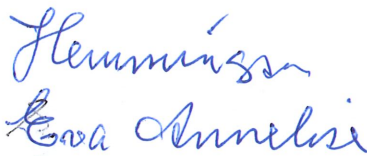 Hemmingsen
Eva Annelise